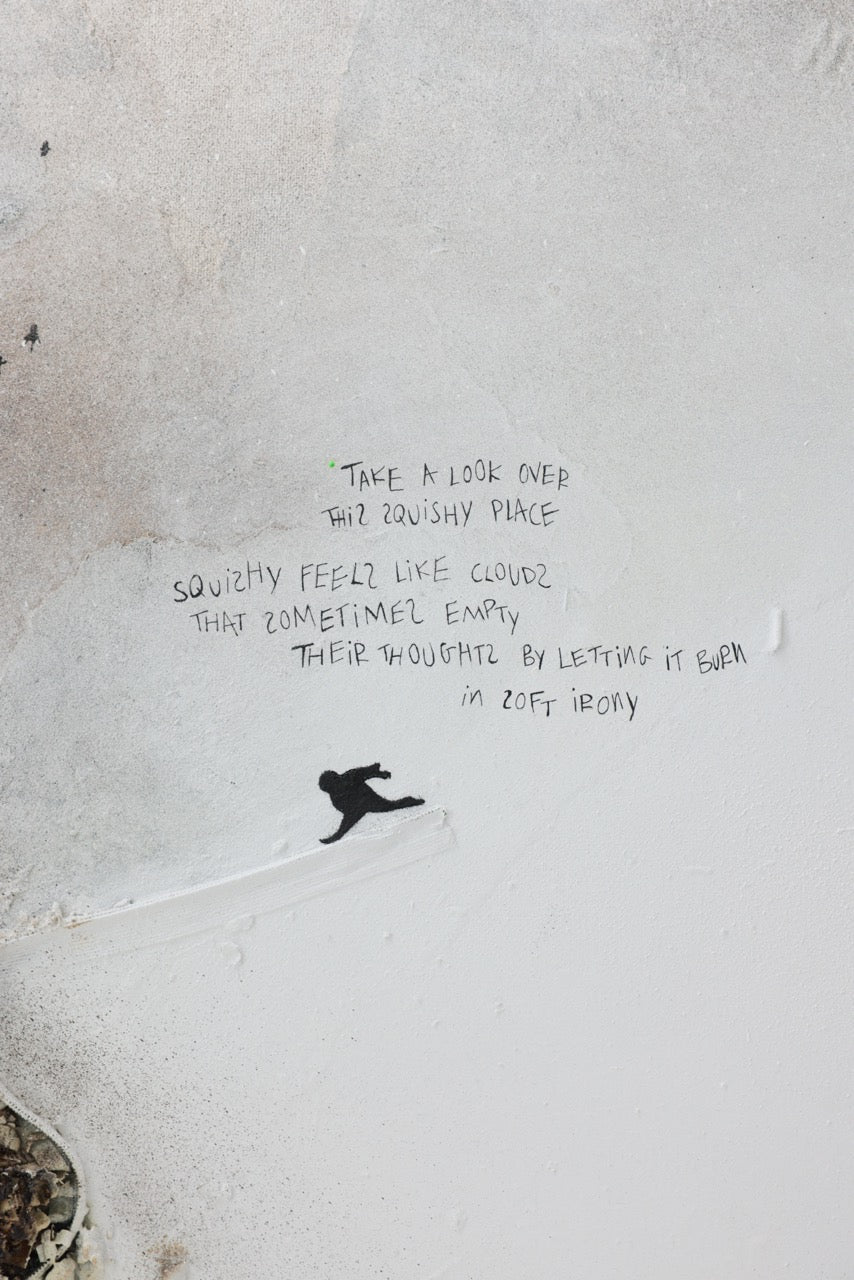 TAKE A LOOK OVER
THiS SQUiSHY PLACE
SQUiSHY FEELS LiKE CLOUDS
THAT SOMETiMES EMPTy
THEiR THOUGHTS BY LETTiNG iT BURN
in SOFT iRONy